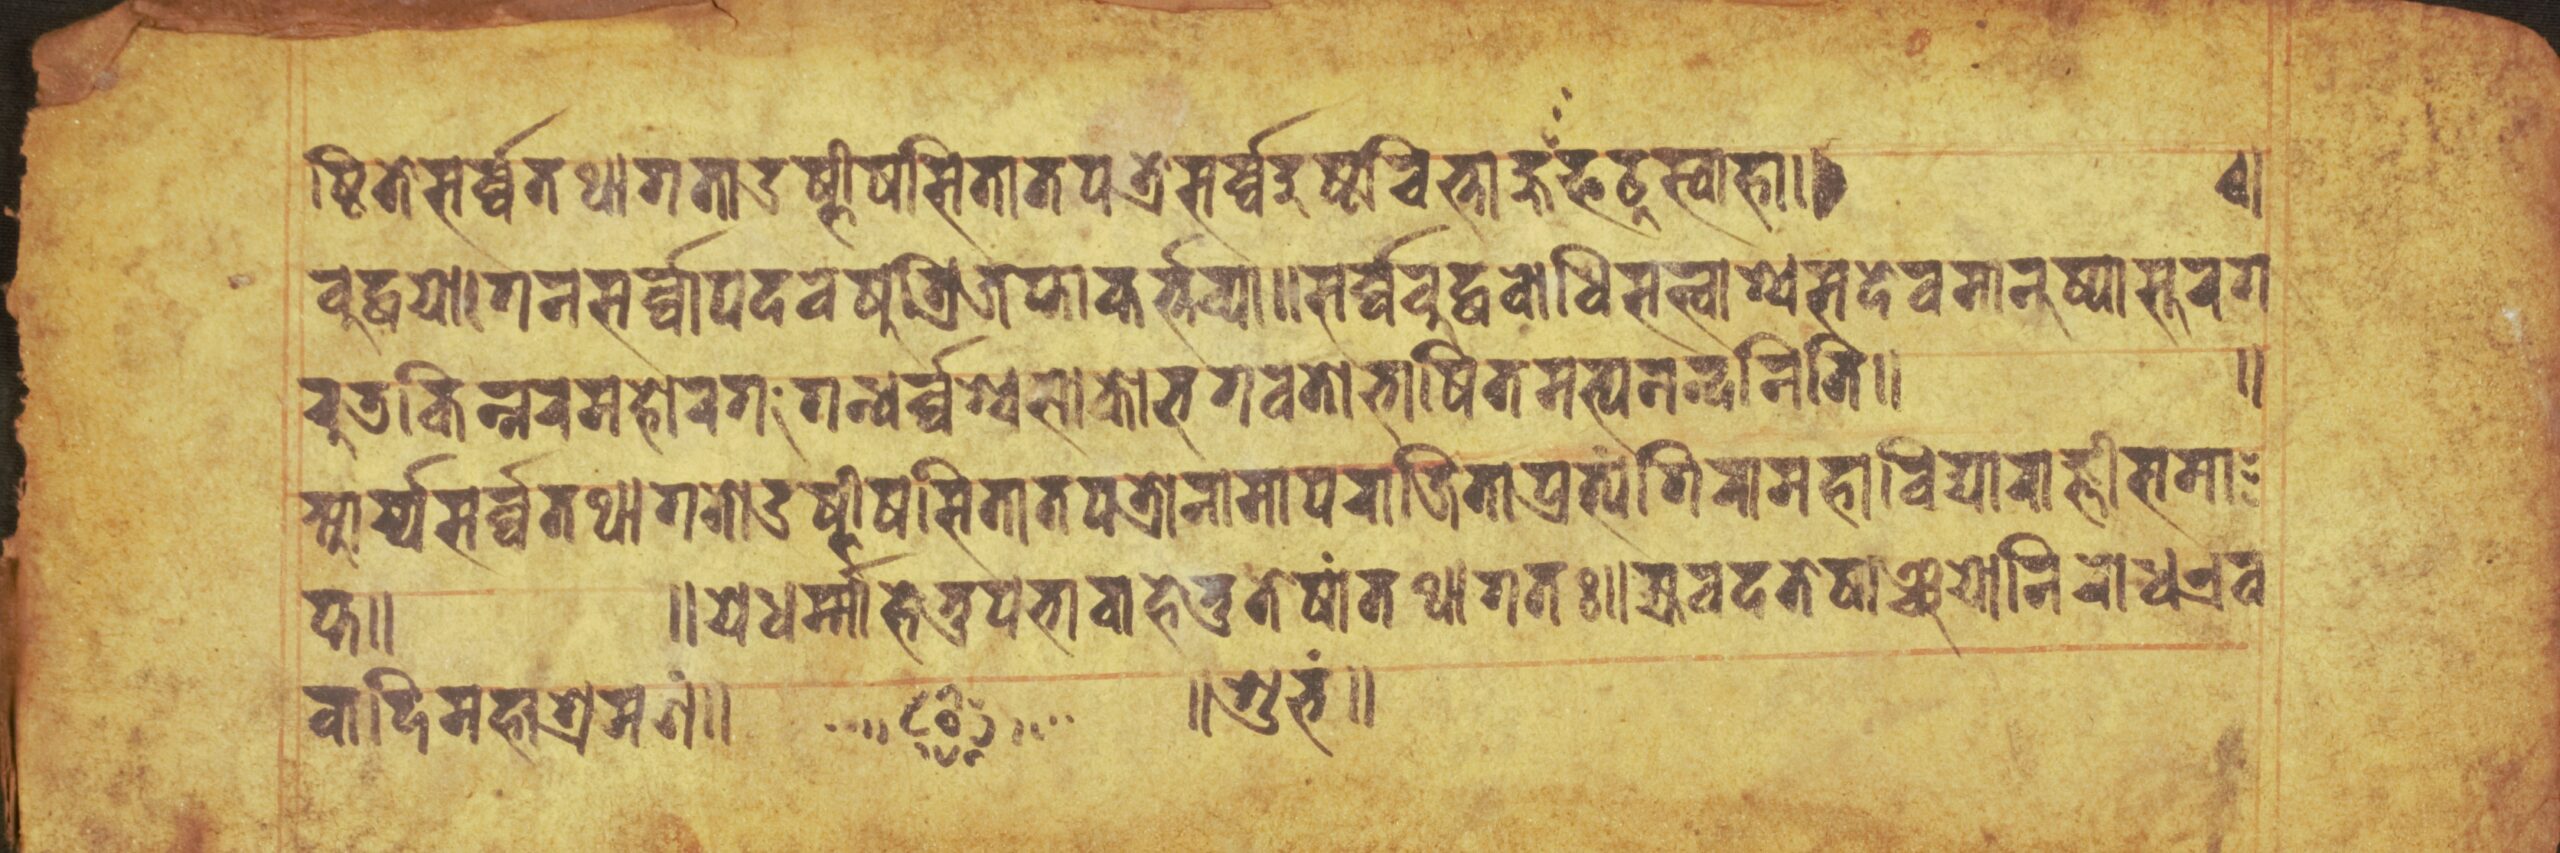 ष्ठिते सर्व्वतथागताउष्णीषसितातपत्रे सर्व्वदुष्टचित्ता हूँ फट् स्वाहा॥ ॥
बुद्धयोगेन सर्व्वापदवषु त्रिजप्ता कर्त्तव्या॥ सर्व्वबुद्धबोधिसत्वाश्च सदेवमानुष्यासूरग
रुडकिन्नरमहोरगः गन्धर्व्वश्च लोको भगवतो भाषितमभ्यनन्दनिति॥ ॥
आर्य्यसर्व्वतथागतोउष्णीषसितातपत्रोनामापराजिताप्रत्यंगिरामहाविद्याराज्ञीसमा
प्त॥ ॥ ये धर्म्मा हेतुपभावा हेतु तेषां तथागतः॥ ह्यवदत् तेषाञ्च यो निरोध एव
वादि महाश्रमणं॥ ॥ शुभं॥